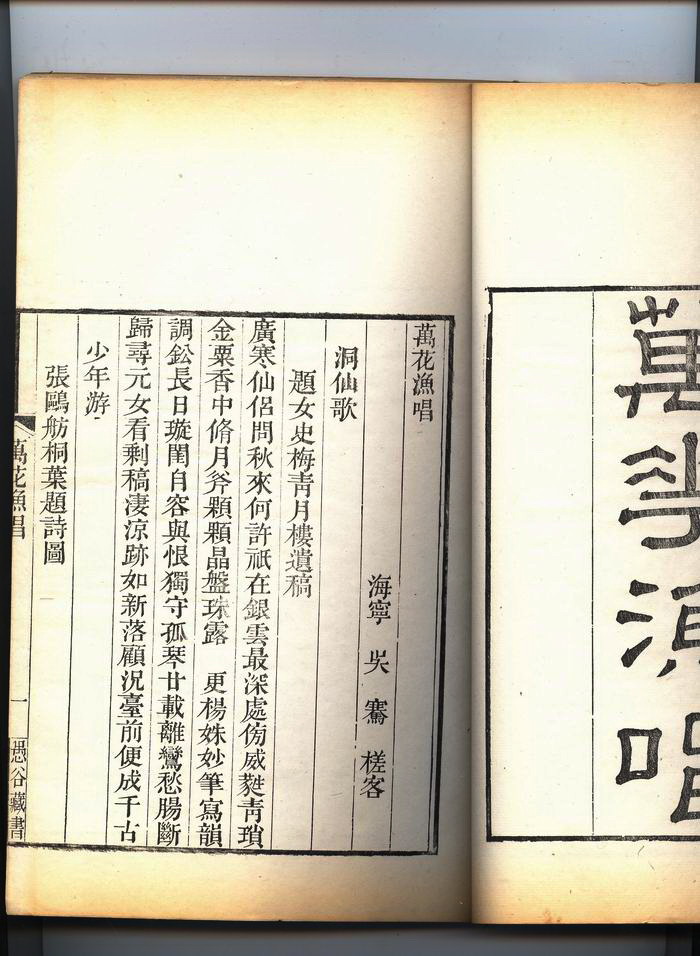 萬花漁唱
萬花漁唱
海寧 吳 騫 槎客
洞仙歌
題女史梅青月樓遺稿
廣寒仙侶問秋來何許祇在銀雲最深處傍威蕤青瑣
金粟香中脩月斧顆顆晶盤珠露 更楊姝妙筆寫韻
調鈆長日璇閨自容與恨獨守孤琴廿載離鸞愁腸斷
歸尋元女看剩稿淒涼跡如新落顧況臺前便成千古
少年游
張鷗舫桐葉題詩圖
萬花漁唱
一
愚谷藏書